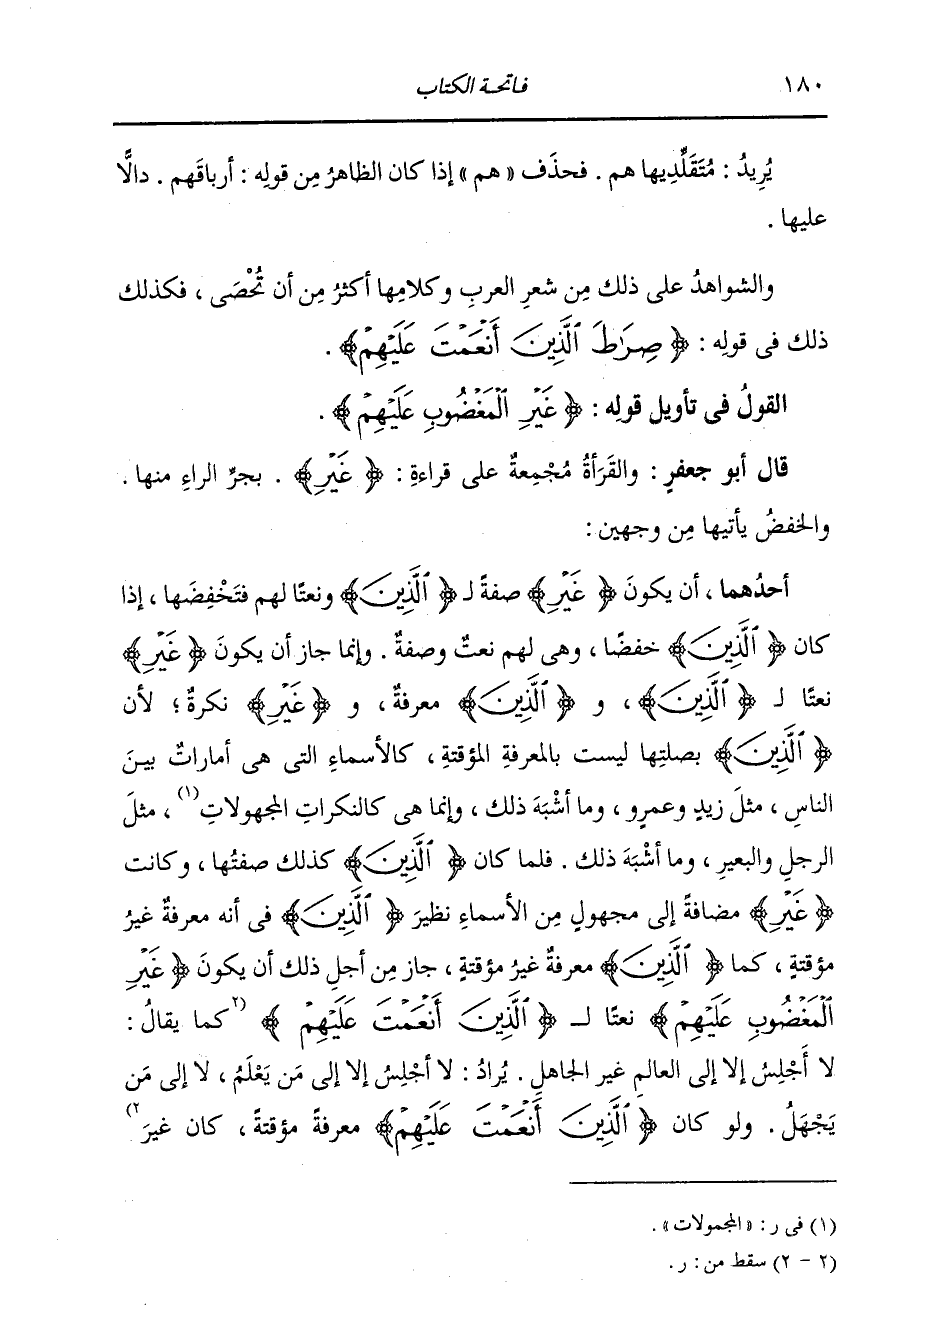 ١٨٠ فاتحة الكتاب
يُرِيدُ : مُتَقَلِّدِيها هم . فحذَف « هم » إذا كان الظاهرُ مِن قولِه : أرباقَهم . دالًّا
عليها .
والشواهدُ على ذلك مِن شعرِ العربِ وكلامِها أكثرُ مِن أن تُحْصَى ، فكذلك
ذلك فى قولِه : ﴿ صِرَٰطَ ٱلَّذِينَ أَنْعَمْتَ عَلَيْهِمْ ﴾ .
القولُ فى تأويل قولِه : ﴿ غَيْرِ ٱلْمَغْضُوبِ عَلَيْهِمْ ﴾ .
قال أبو جعفرٍ : والقَرَأةُ مُجْمِعةٌ على قراءةِ : ﴿ غَيْرِ ﴾ . بجرِّ الراءِ منها .
والخفضُ يأتيها مِن وجهين :
أحدُهما ، أن يكونَ ﴿ غَيْرِ ﴾ صفةً لـ ﴿ ٱلَّذِينَ ﴾ ونعتًا لهم فتَخْفِضَها ، إذا
كان ﴿ ٱلَّذِينَ ﴾ خفضًا ، وهى لهم نعتٌ وصفةٌ . وإنما جاز أن يكونَ ﴿ غَيْرِ ﴾
نعتًا لـ ﴿ ٱلَّذِينَ ﴾ ، و ﴿ ٱلَّذِينَ ﴾ معرفةٌ ، و ﴿ غَيْرِ ﴾ نكرةٌ ؛ لأن
﴿ ٱلَّذِينَ ﴾ بصلتِها ليست بالمعرفةِ المؤقتةِ ، كالأسماءِ التى هى أماراتٌ بينَ
الناسِ ، مثلَ زيدٍ وعمرٍو ، وما أشْبَهَ ذلك ، وإنما هى كالنكراتِ المجهولاتِ(١) ، مثلَ
الرجلِ والبعيرِ ، وما أشْبَهَ ذلك . فلما كان ﴿ ٱلَّذِينَ ﴾ كذلك صفتُها ، وكانت
﴿ غَيْرِ ﴾ مضافةً إلى مجهولٍ مِن الأسماءِ نظيرَ ﴿ ٱلَّذِينَ ﴾ فى أنه معرفةٌ غيرُ
مؤقتةٍ ، كما ﴿ ٱلَّذِينَ ﴾ معرفةٌ غيرُ مؤقتةٍ ، جاز مِن أجلِ ذلك أن يكونَ ﴿ غَيْرِ
ٱلْمَغْضُوبِ عَلَيْهِمْ ﴾ نعتًا لـ ﴿ ٱلَّذِينَ أَنْعَمْتَ عَلَيْهِمْ ﴾ (٢كما يقالُ :
لا أَجْلِسُ إلا إلى العالمِ غيرِ الجاهلِ . يُرادُ : لا أجْلِسُ إلا إلى مَن يَعْلَمُ ، لا إلى مَن
يَجْهَلُ . ولو كان ﴿ ٱلَّذِينَ أَنْعَمْتَ عَلَيْهِمْ ﴾ معرفةً مؤقتةً ، كان غيرَ٢)
(١) فى ر : « المجمولات » .
(٢ - ٢) سقط من : ر .